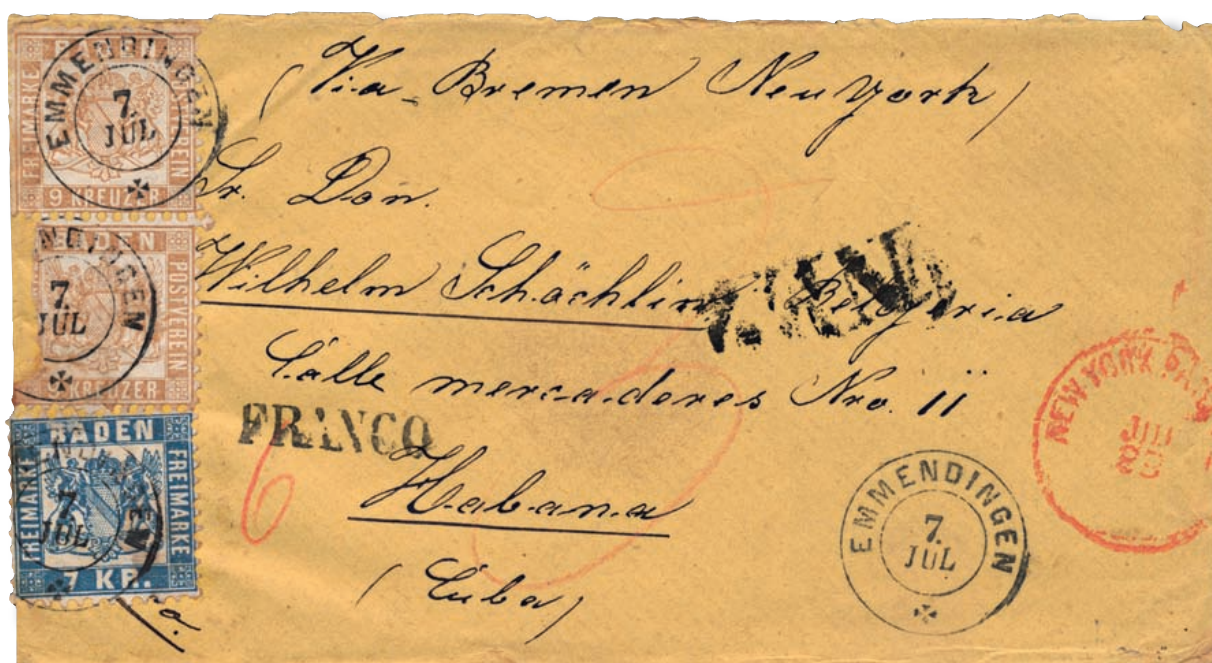 BADEN
FREIMARKE
POSTVEREIN
9 KREUZER
EMMENDINGEN
7.
JUL
BADEN
POSTVEREIN
9 KREUZER
7.
JUL
BADEN
FREIMARKE
FREIMARKE
7 KR.
7.
JUL
(Via Bremen New York)
Sr. Don.
Wilhelm Schächlin
Calle mercaderes Nro. 11
FRANCO
Habana
(Cuba)
6
EMMENDINGEN
7.
JUL
NEW YORK